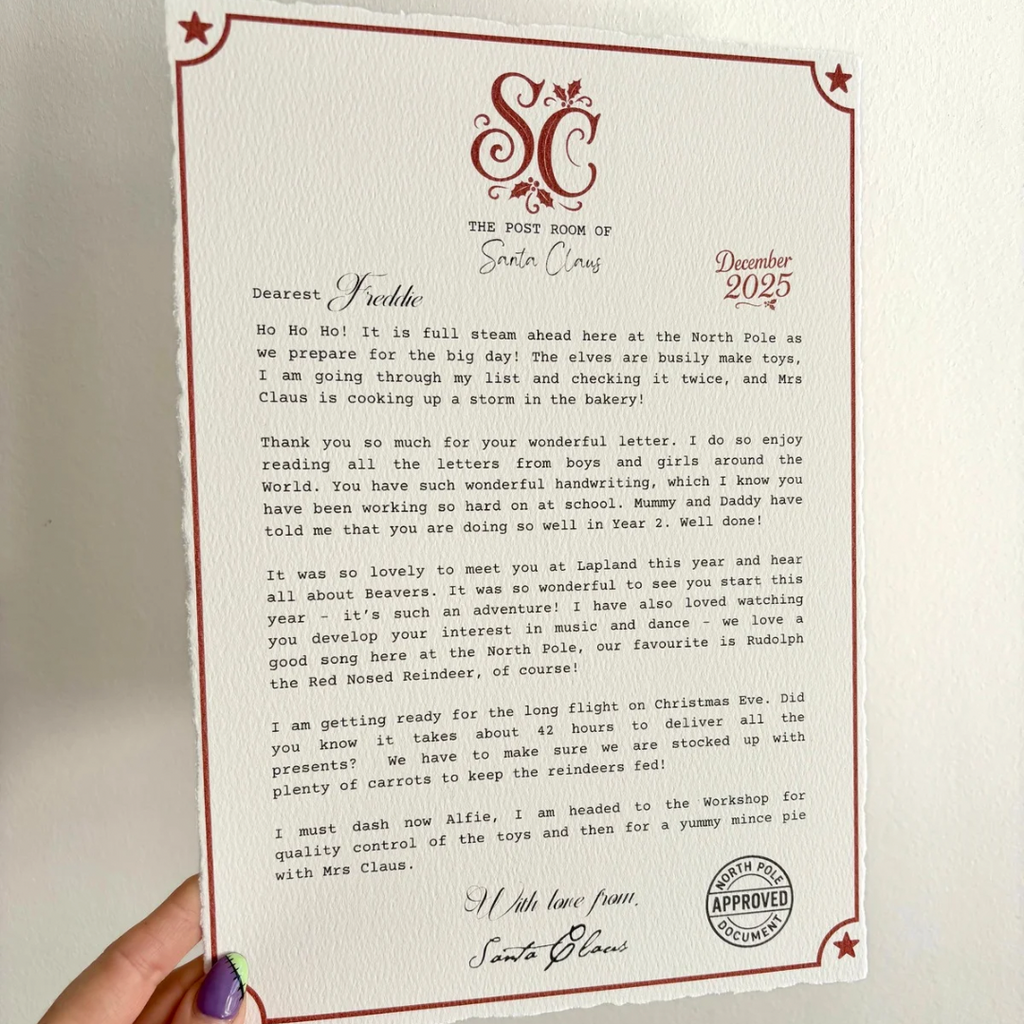 SC
THE POST ROOM OF
Santa Claus
December
2025
Dearest Freddie
Ho Ho Ho! It is full steam ahead here at the North Pole as
we prepare for the big day! The elves are busily make toys,
I am going through my list and checking it twice, and Mrs
Claus is cooking up a storm in the bakery!
Thank you so much for your wonderful letter. I do so enjoy
reading all the letters from boys and girls around the
World. You have such wonderful handwriting, which I know you
have been working so hard on at school. Mummy and Daddy have
told me that you are doing so well in Year 2. Well done!
It was so lovely to meet you at Lapland this year and hear
all about Beavers. It was so wonderful to see you start this
year – it's such an adventure! I have also loved watching
you develop your interest in music and dance – we love a
good song here at the North Pole, our favourite is Rudolph
the Red Nosed Reindeer, of course!
I am getting ready for the long flight on Christmas Eve. Did
you know it takes about 42 hours to deliver all the
presents? We have to make sure we are stocked up with
plenty of carrots to keep the reindeers fed!
I must dash now Alfie, I am headed to the Workshop for
quality control of the toys and then for a yummy mince pie
with Mrs Claus.
With love from,
Santa Claus
NORTH POLE
APPROVED
DOCUMENT